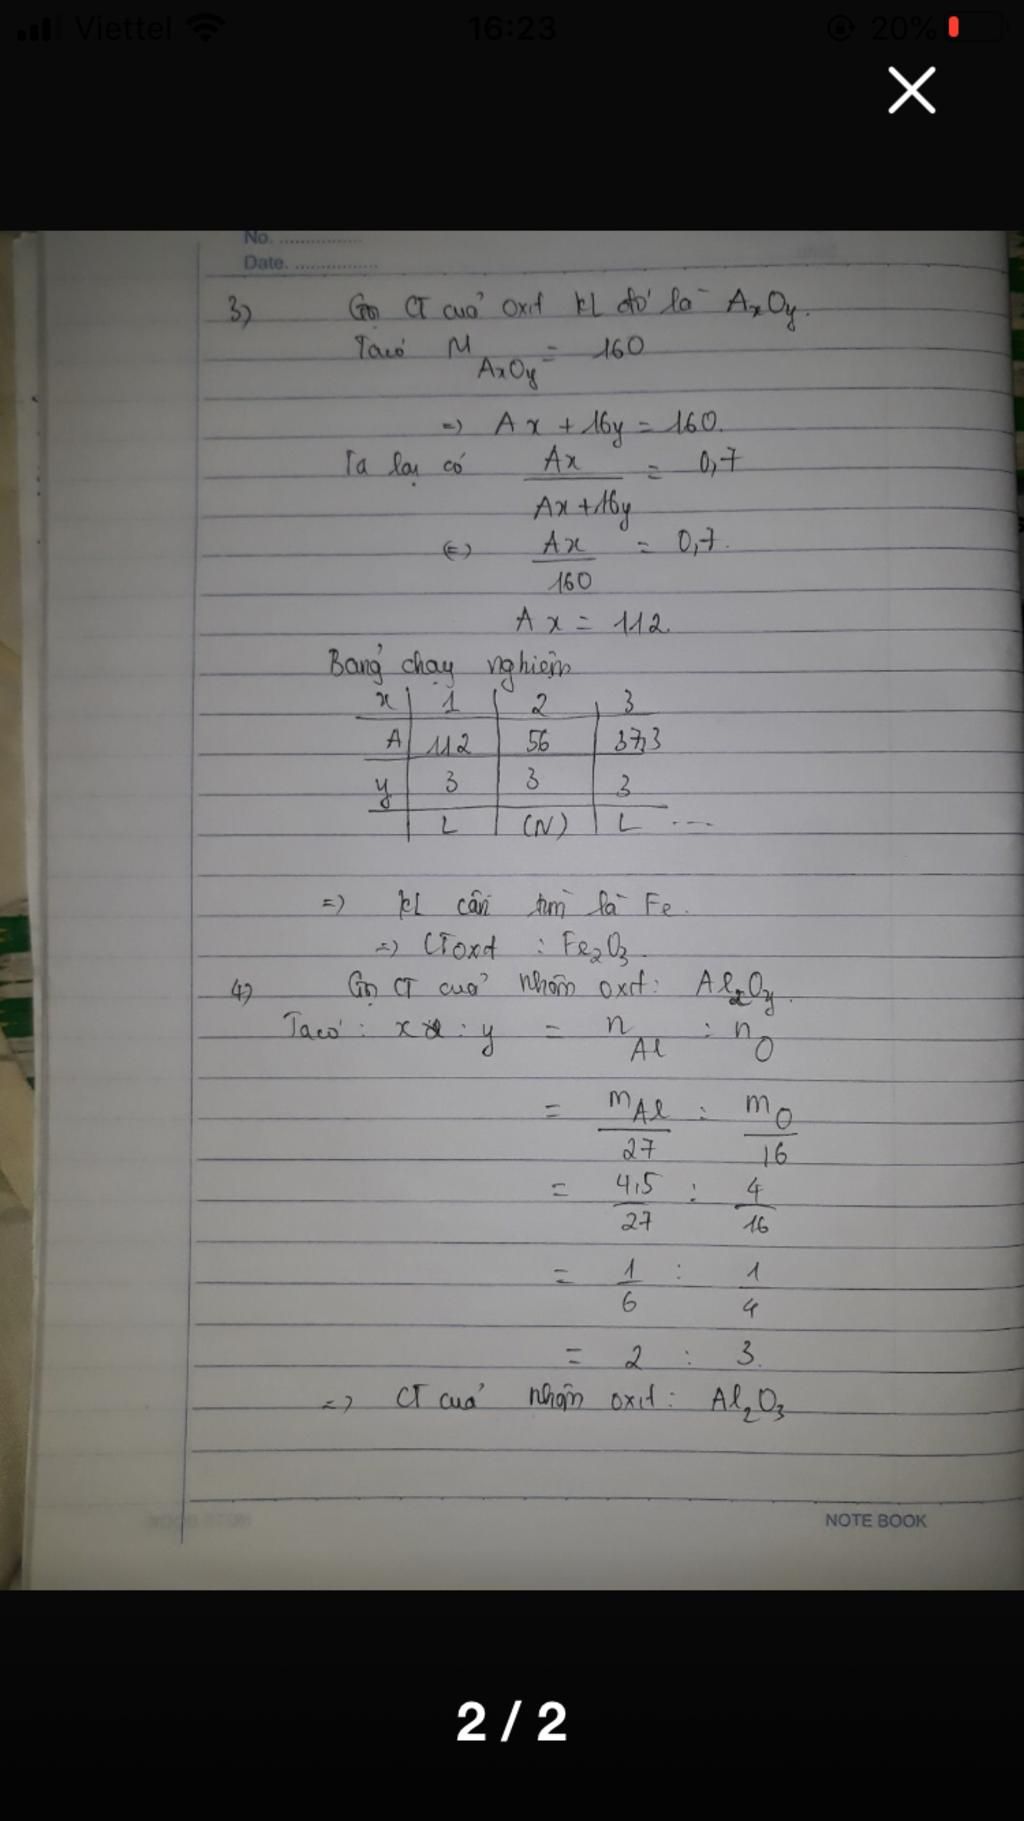 Viettel 16:23 20%
No. ................
Date. ................
3) Gọi CT của oxit kl đó là AxOy.
Ta có M AxOy = 160
=> Ax + 16y = 160.
Ta lại có Ax / Ax + 16y = 0,7
(=) Ax / 160 = 0,7.
Ax = 112.
Bảng chạy nghiệm
x | 1 | 2 | 3
A | 112 | 56 | 37,3
y | 3 | 3 | 3
L | (N) | L ...
=) kl cần tìm là Fe.
=) CT oxit : Fe₂O₃.
4) Gọi CT của nhôm oxit: AlxOy.
Ta có : x : y = n Al : n O
= mAl / 27 : mO / 16
= 4,5 / 27 : 4 / 16
= 1 / 6 : 1 / 4
= 2 : 3.
=) CT của nhôm oxit: Al₂O₃
NOTE BOOK
2 / 2